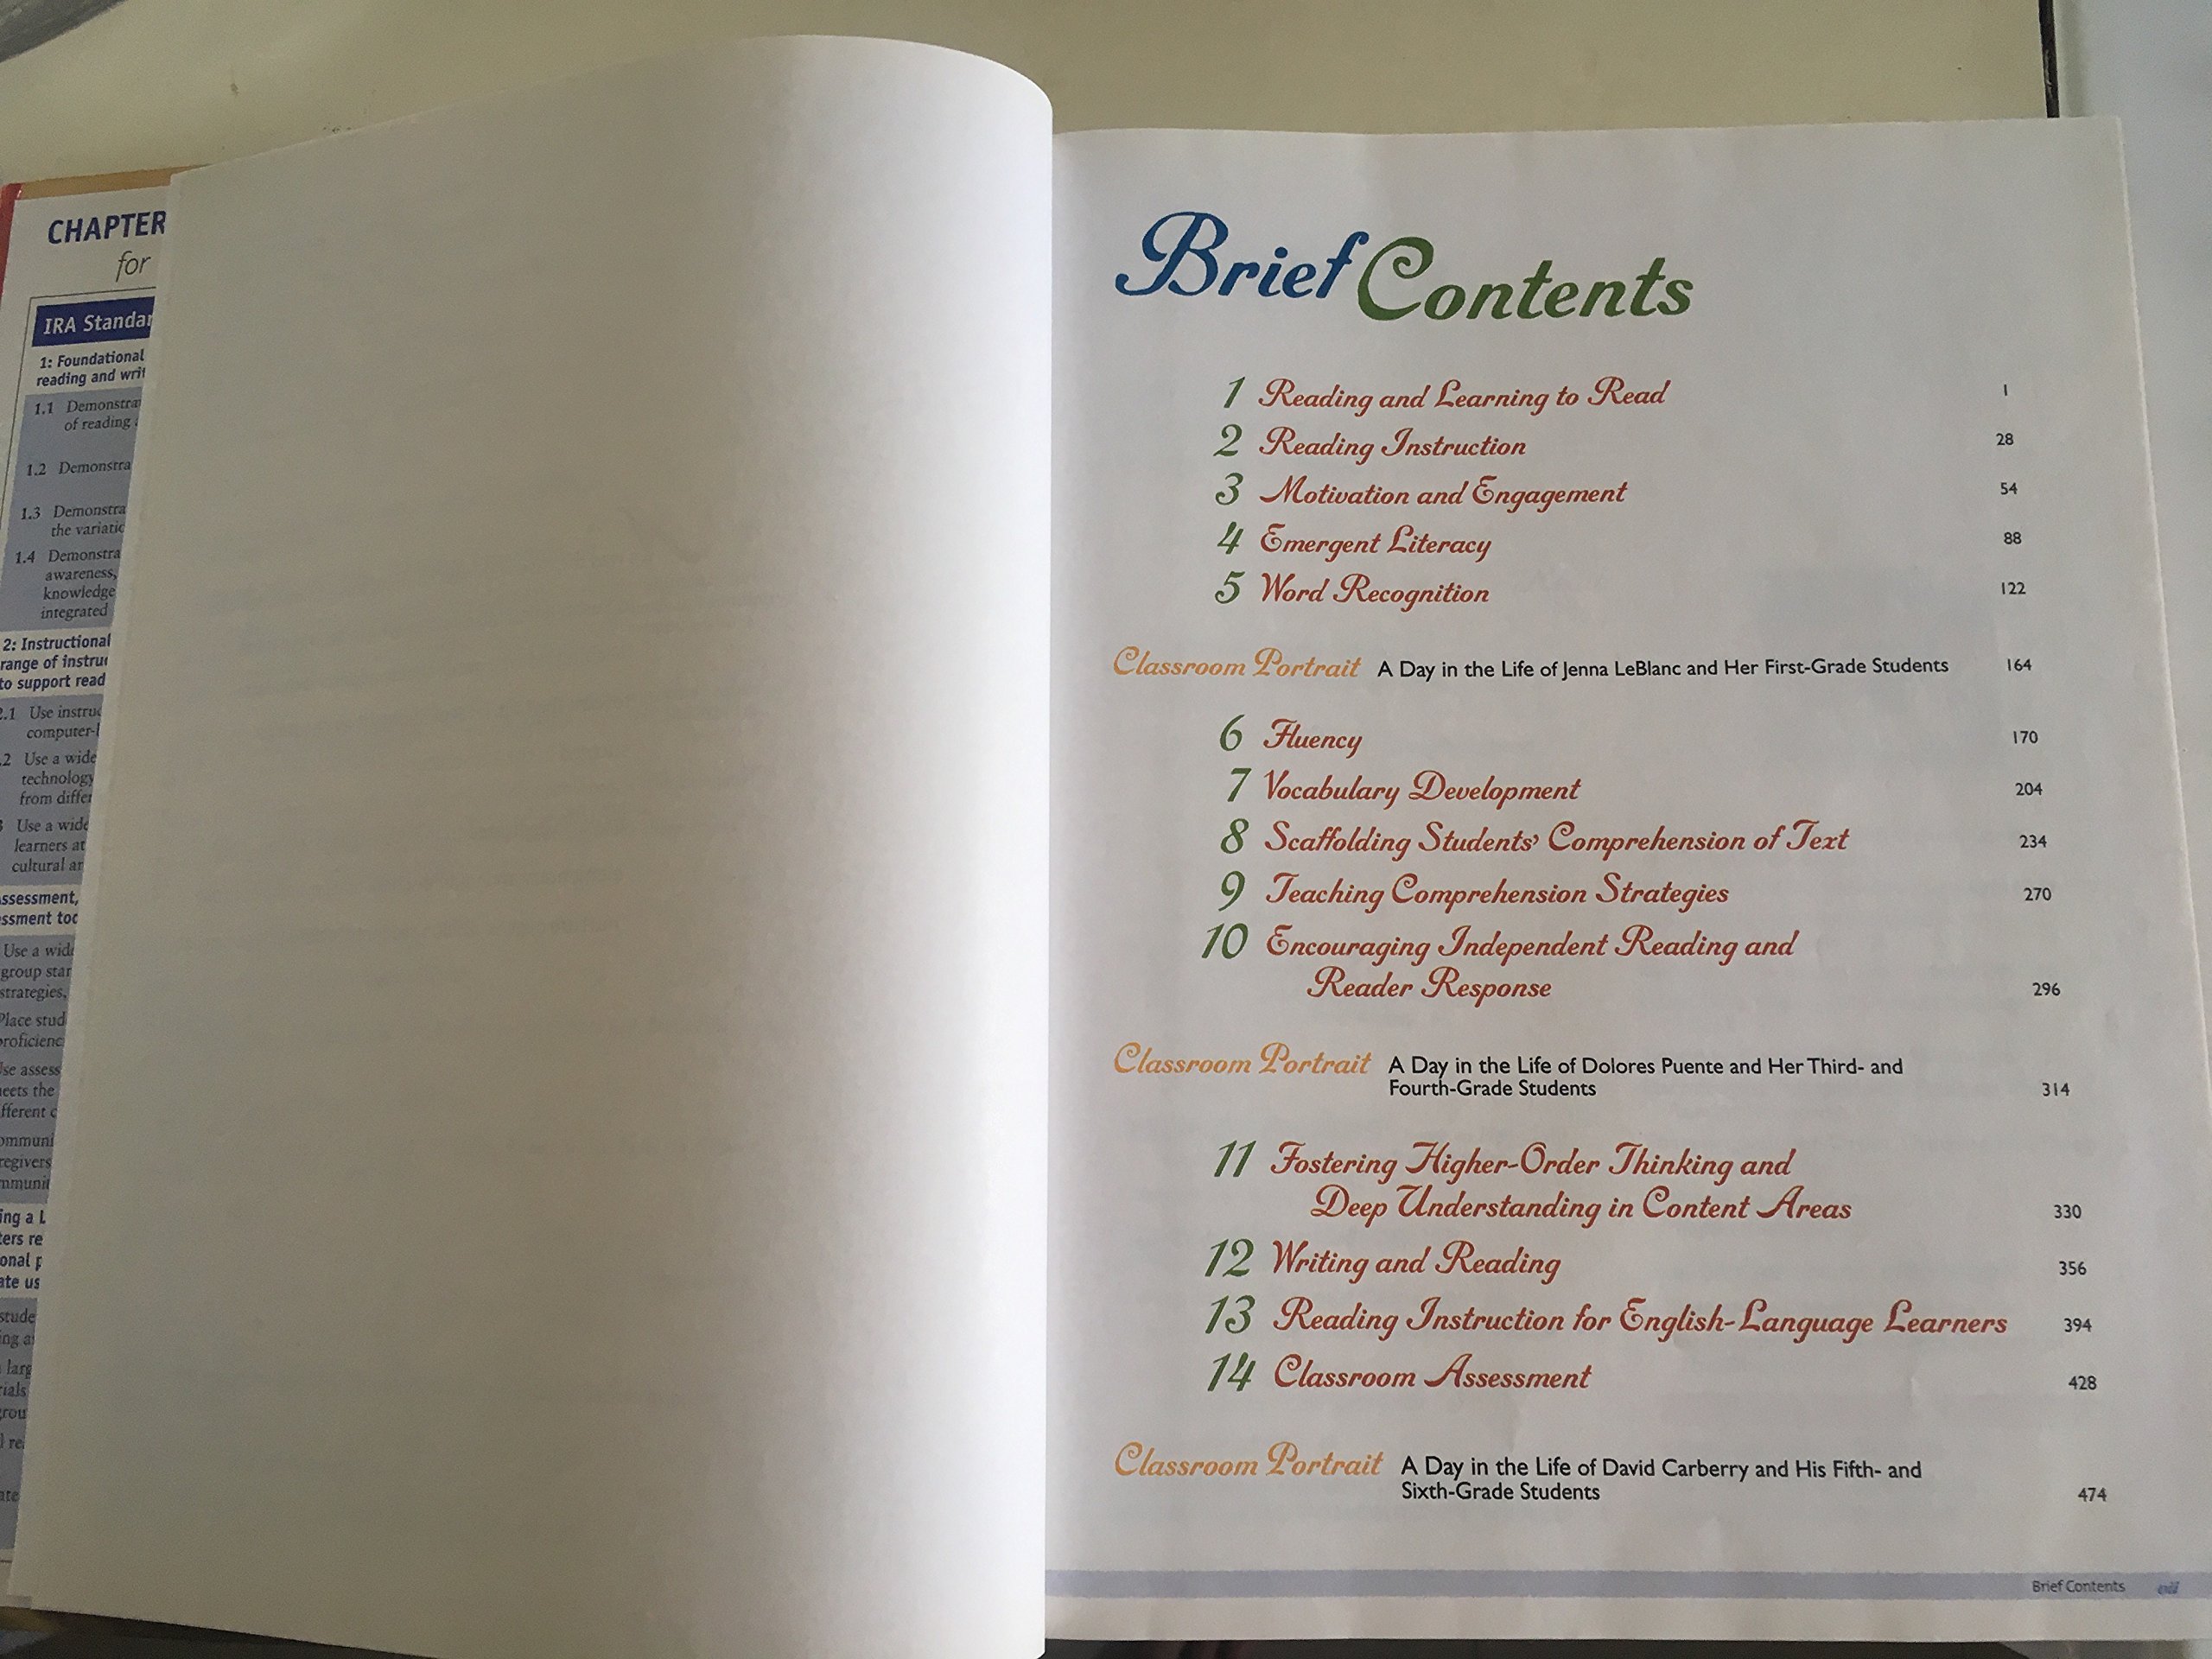 CHAPTER
for
IRA
1: Foundational
reading and
1.1
of reading
1.2
1.3
the
1.4
awareness,
knowledge
integrated
2: Instructional
range of
to support read
Use
Use a wide
technology
from
Use a
learners at
cultural
Assessment,
Use a
group
strategies,
Place
meets the
Brief Contents
1 Reading and Learning to Read 1
2 Reading Instruction 28
3 Motivation and Engagement 54
4 Emergent Literacy 88
5 Word Recognition 122
Classroom Portrait A Day in the Life of Jenna LeBlanc and Her First-Grade Students 164
6 Fluency 170
7 Vocabulary Development 204
8 Scaffolding Students' Comprehension of Text 234
9 Teaching Comprehension Strategies 270
10 Encouraging Independent Reading and
Reader Response 296
Classroom Portrait A Day in the Life of Dolores Puente and Her Third- and
Fourth-Grade Students 314
11 Fostering Higher-Order Thinking and
Deep Understanding in Content Areas 330
12 Writing and Reading 356
13 Reading Instruction for English-Language Learners 394
14 Classroom Assessment 428
Classroom Portrait A Day in the Life of David Carberry and His Fifth- and
Sixth-Grade Students 474
Brief Contents vii